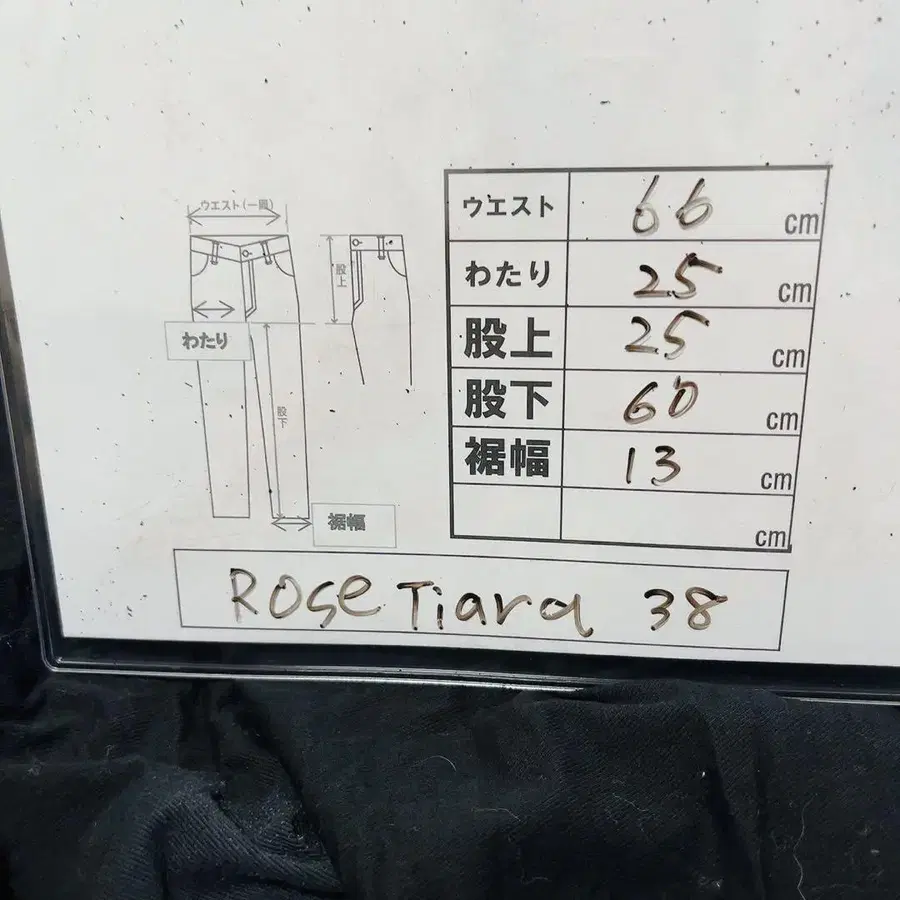 ウエスト(一周)
股上
わたり
股下
裾幅
ウエスト 66 cm
わたり 25 cm
股上 25 cm
股下 60 cm
裾幅 13 cm
cm
Rose Tiara 38